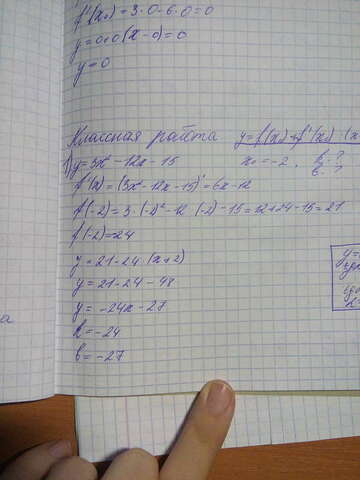 f'(x₀) = 3·0 - 6·0 = 0
y = 0+0(x-0) = 0
y = 0
Классная работа y = f(x₀)+f'(x₀)(x
1) y = 3x² - 12x - 15 x₀ = -2, k-? b-?
f'(x) = (3x² - 12x - 15)' = 6x - 12
f(-2) = 3·(-2)² - 12·(-2) - 15 = 12+24-15 = 21
f(-2) = 24
y = 21 - 24·(x+2)
y = 21 - 24 - 48
y = -24x - 27
k = -24
b = -27